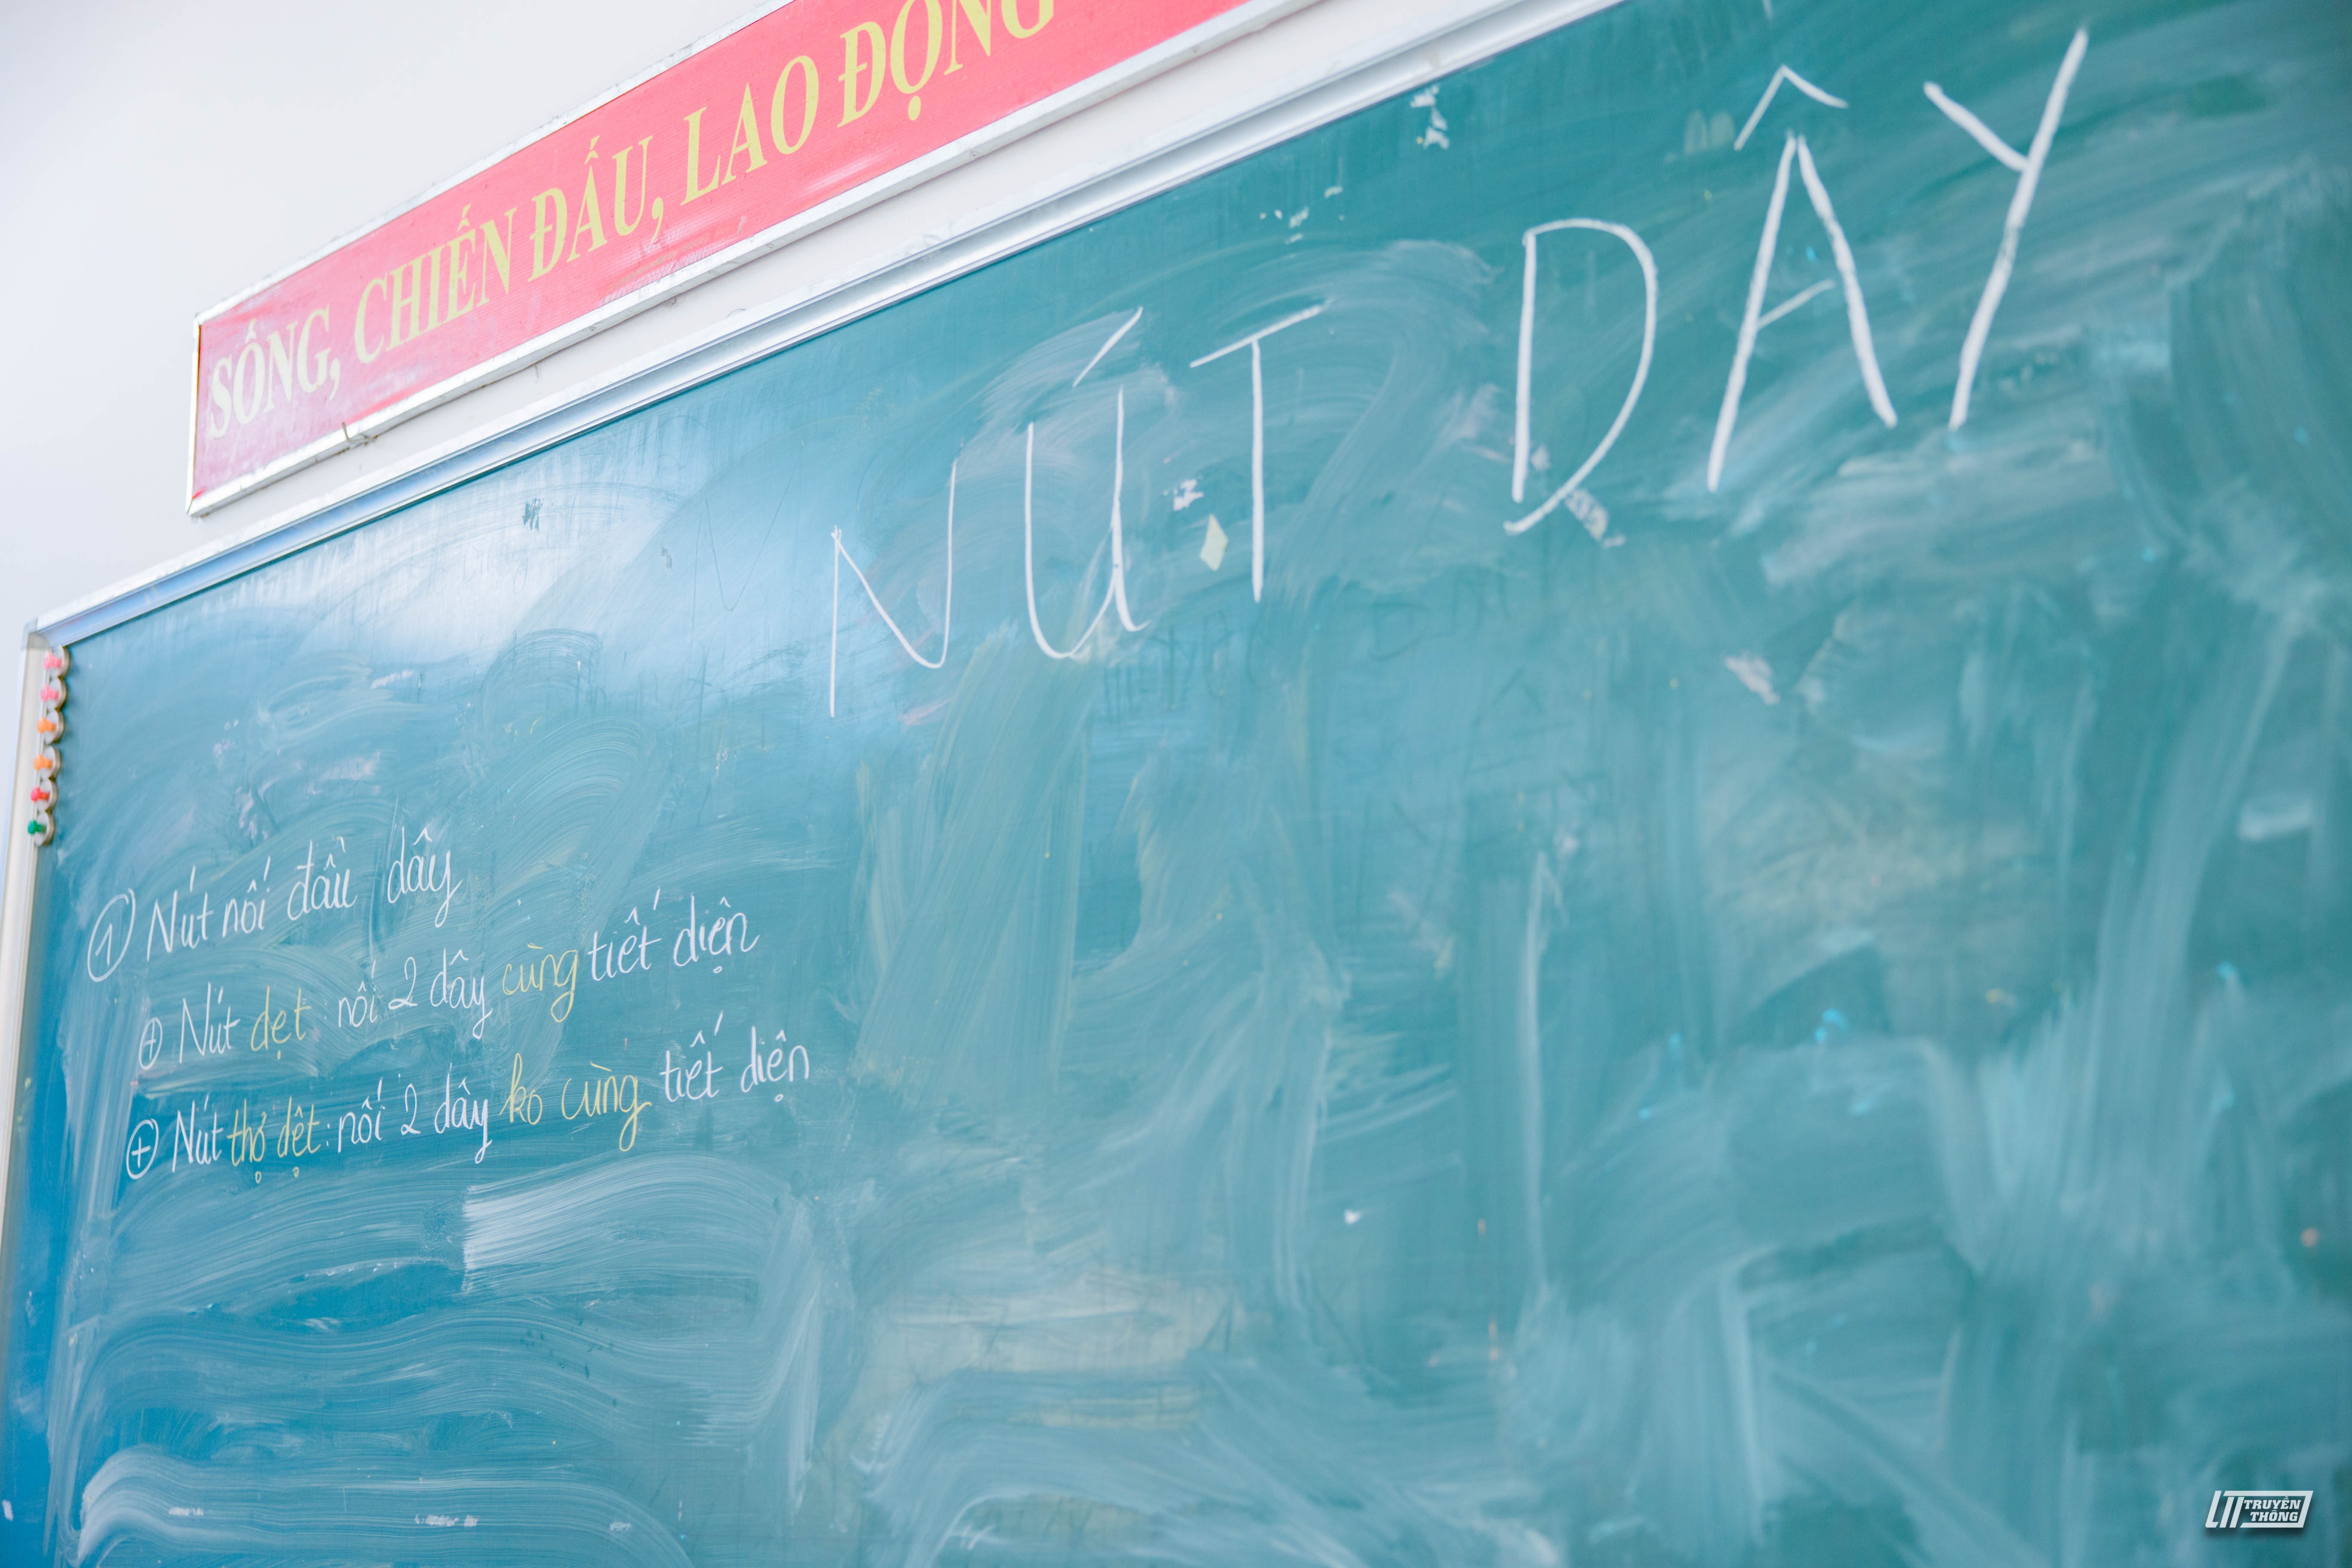 SỐNG, CHIẾN ĐẤU, LAO ĐỘNG
NÚT DÂY
① Nút nối đầu dây
⊕ Nút dẹt: nối 2 dây cùng tiết diện
⊕ Nút thợ dệt: nối 2 dây ko cùng tiết diện
TRUYỀN
THÔNG